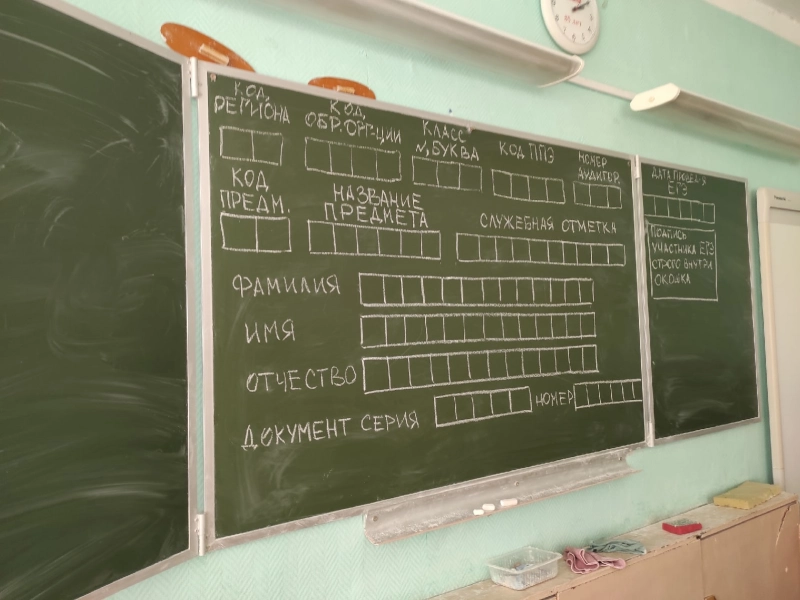 КОД
РЕГИОНА
КОД
ОБР.ОРГ-ЦИИ
КЛАСС
№, БУКВА
КОД ППЭ
НОМЕР
АУДИТОР.
КОД
ПРЕДМ.
НАЗВАНИЕ
ПРЕДМЕТА
СЛУЖЕБНАЯ ОТМЕТКА
ФАМИЛИЯ
ИМЯ
ОТЧЕСТВО
ДОКУМЕНТ СЕРИЯ
НОМЕР
ДАТА
ЕГЭ
ПОДПИСЬ
УЧАСТНИКА ЕГЭ
СТРОГО ВНУТРИ
ОКОШКА